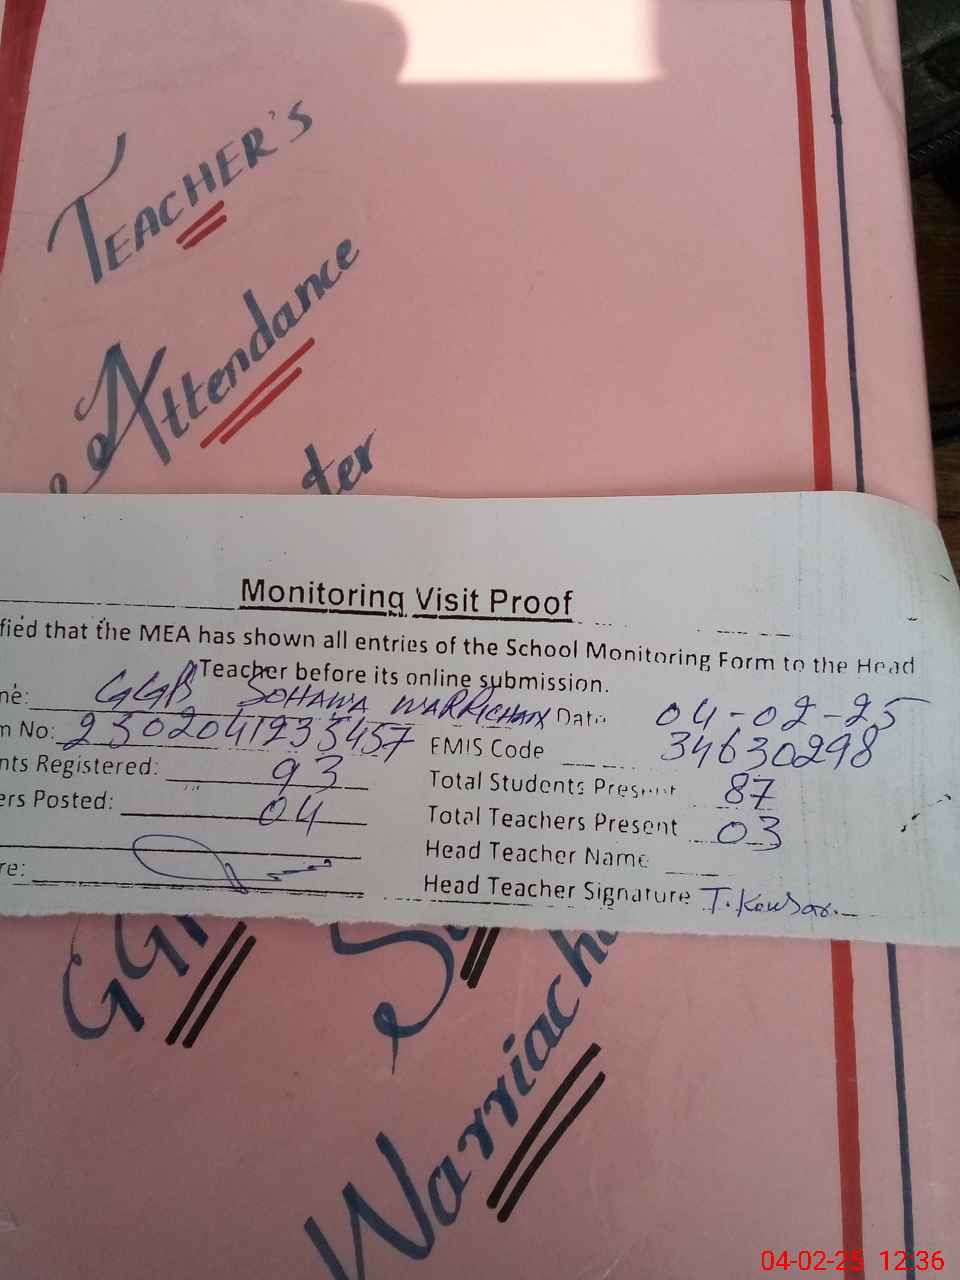 TEACHER'S
Attendance
ter
Monitoring Visit Proof
fied that the MEA has shown all entries of the School Monitoring Form to the Head
Teacher before its online submission.
ne: GGPS SOHAWA WARRICHAN Date 04-02-25
m No: 2302041235457 EMIS Code 34630298
nts Registered: 93 Total Students Present 87
ers Posted: 04 Total Teachers Present 03
Head Teacher Name
re: Head Teacher Signature T. Kousar.
GGP
S
Warriach
04-02-25 12:36